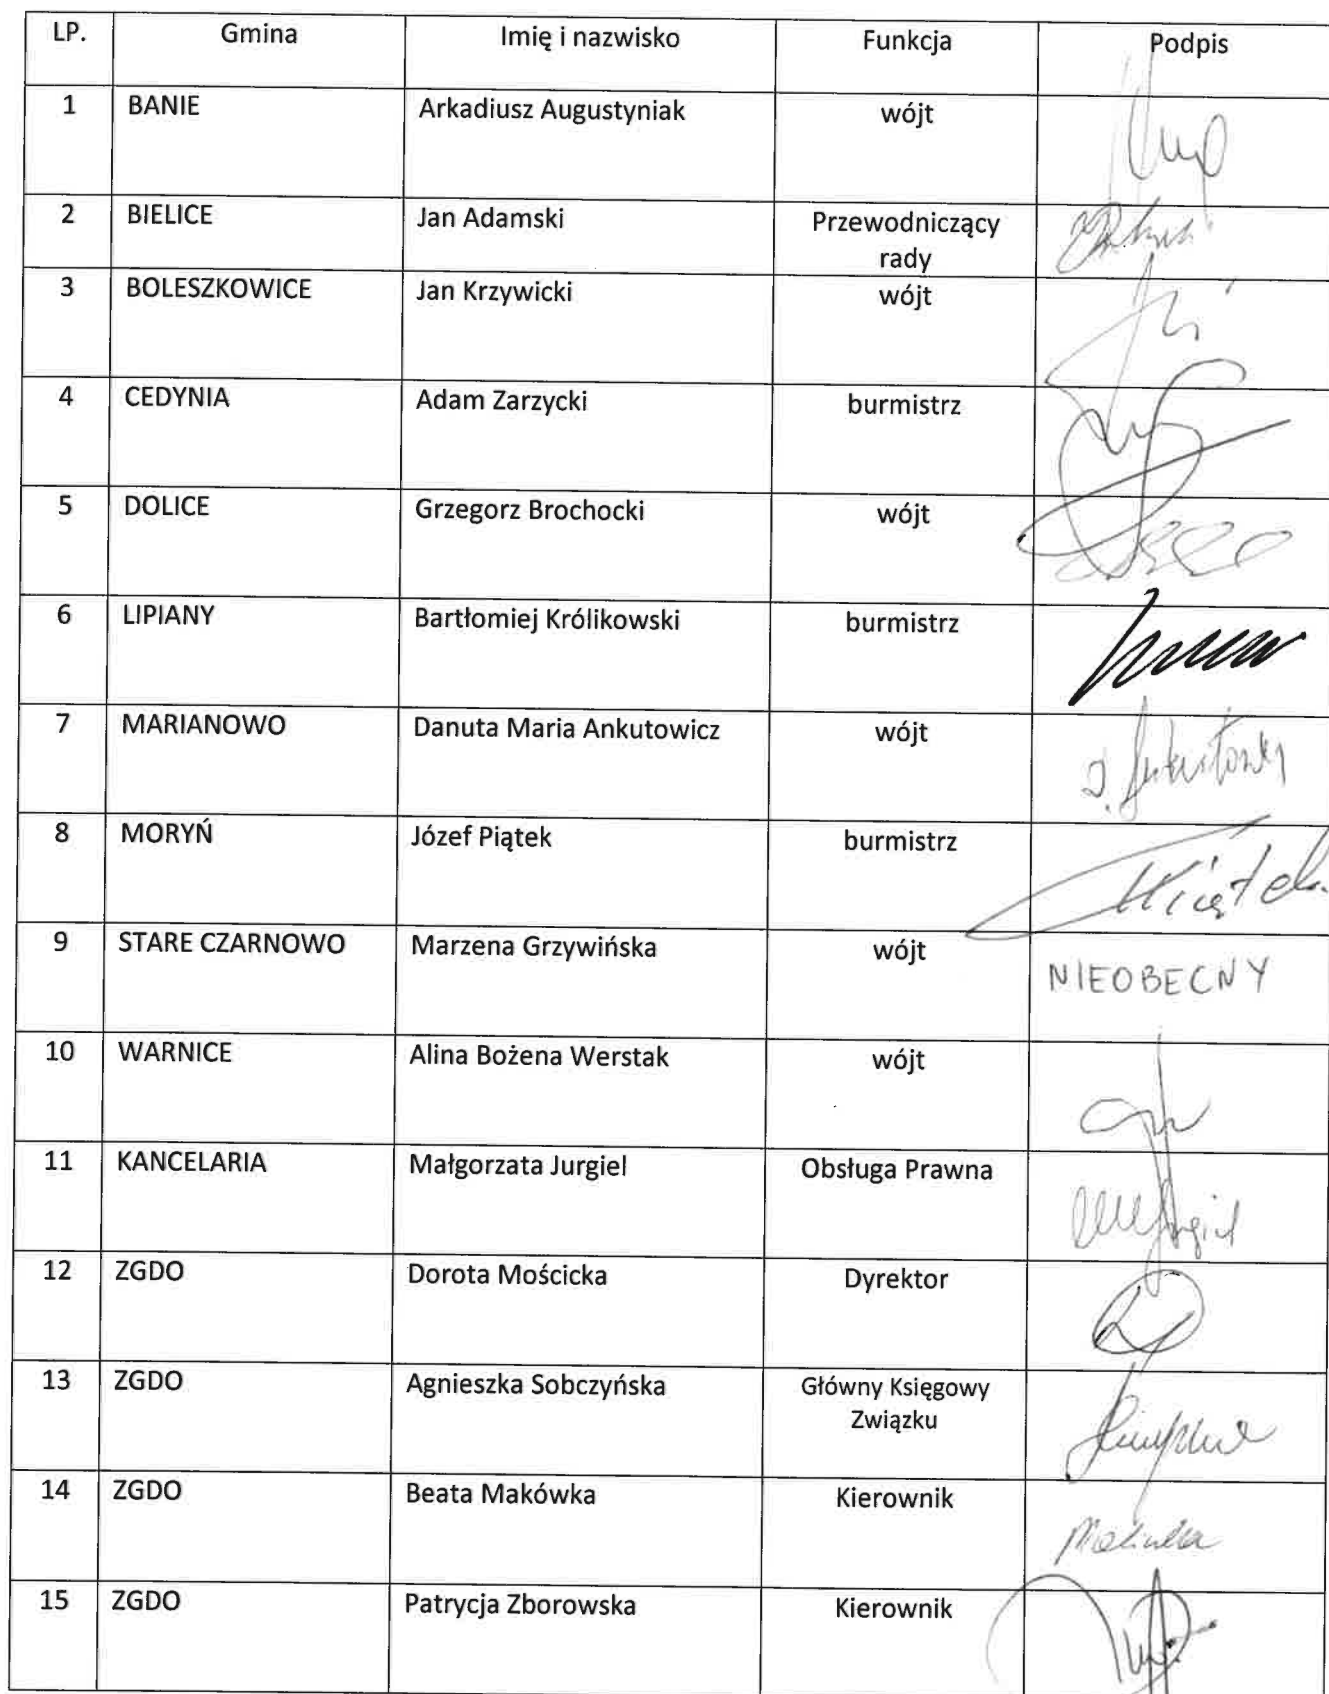 LP. Gmina Imię i nazwisko Funkcja Podpis
1 BANIE Arkadiusz Augustyniak wójt
2 BIELICE Jan Adamski Przewodniczący
rady
3 BOLESZKOWICE Jan Krzywicki wójt
4 CEDYNIA Adam Zarzycki burmistrz
5 DOLICE Grzegorz Brochocki wójt
6 LIPIANY Bartłomiej Królikowski burmistrz
7 MARIANOWO Danuta Maria Ankutowicz wójt
8 MORYŃ Józef Piątek burmistrz
9 STARE CZARNOWO Marzena Grzywińska wójt NIEOBECNY
10 WARNICE Alina Bożena Werstak wójt
11 KANCELARIA Małgorzata Jurgiel Obsługa Prawna
12 ZGDO Dorota Mościcka Dyrektor
13 ZGDO Agnieszka Sobczyńska Główny Księgowy
Związku
14 ZGDO Beata Makówka Kierownik
15 ZGDO Patrycja Zborowska Kierownik